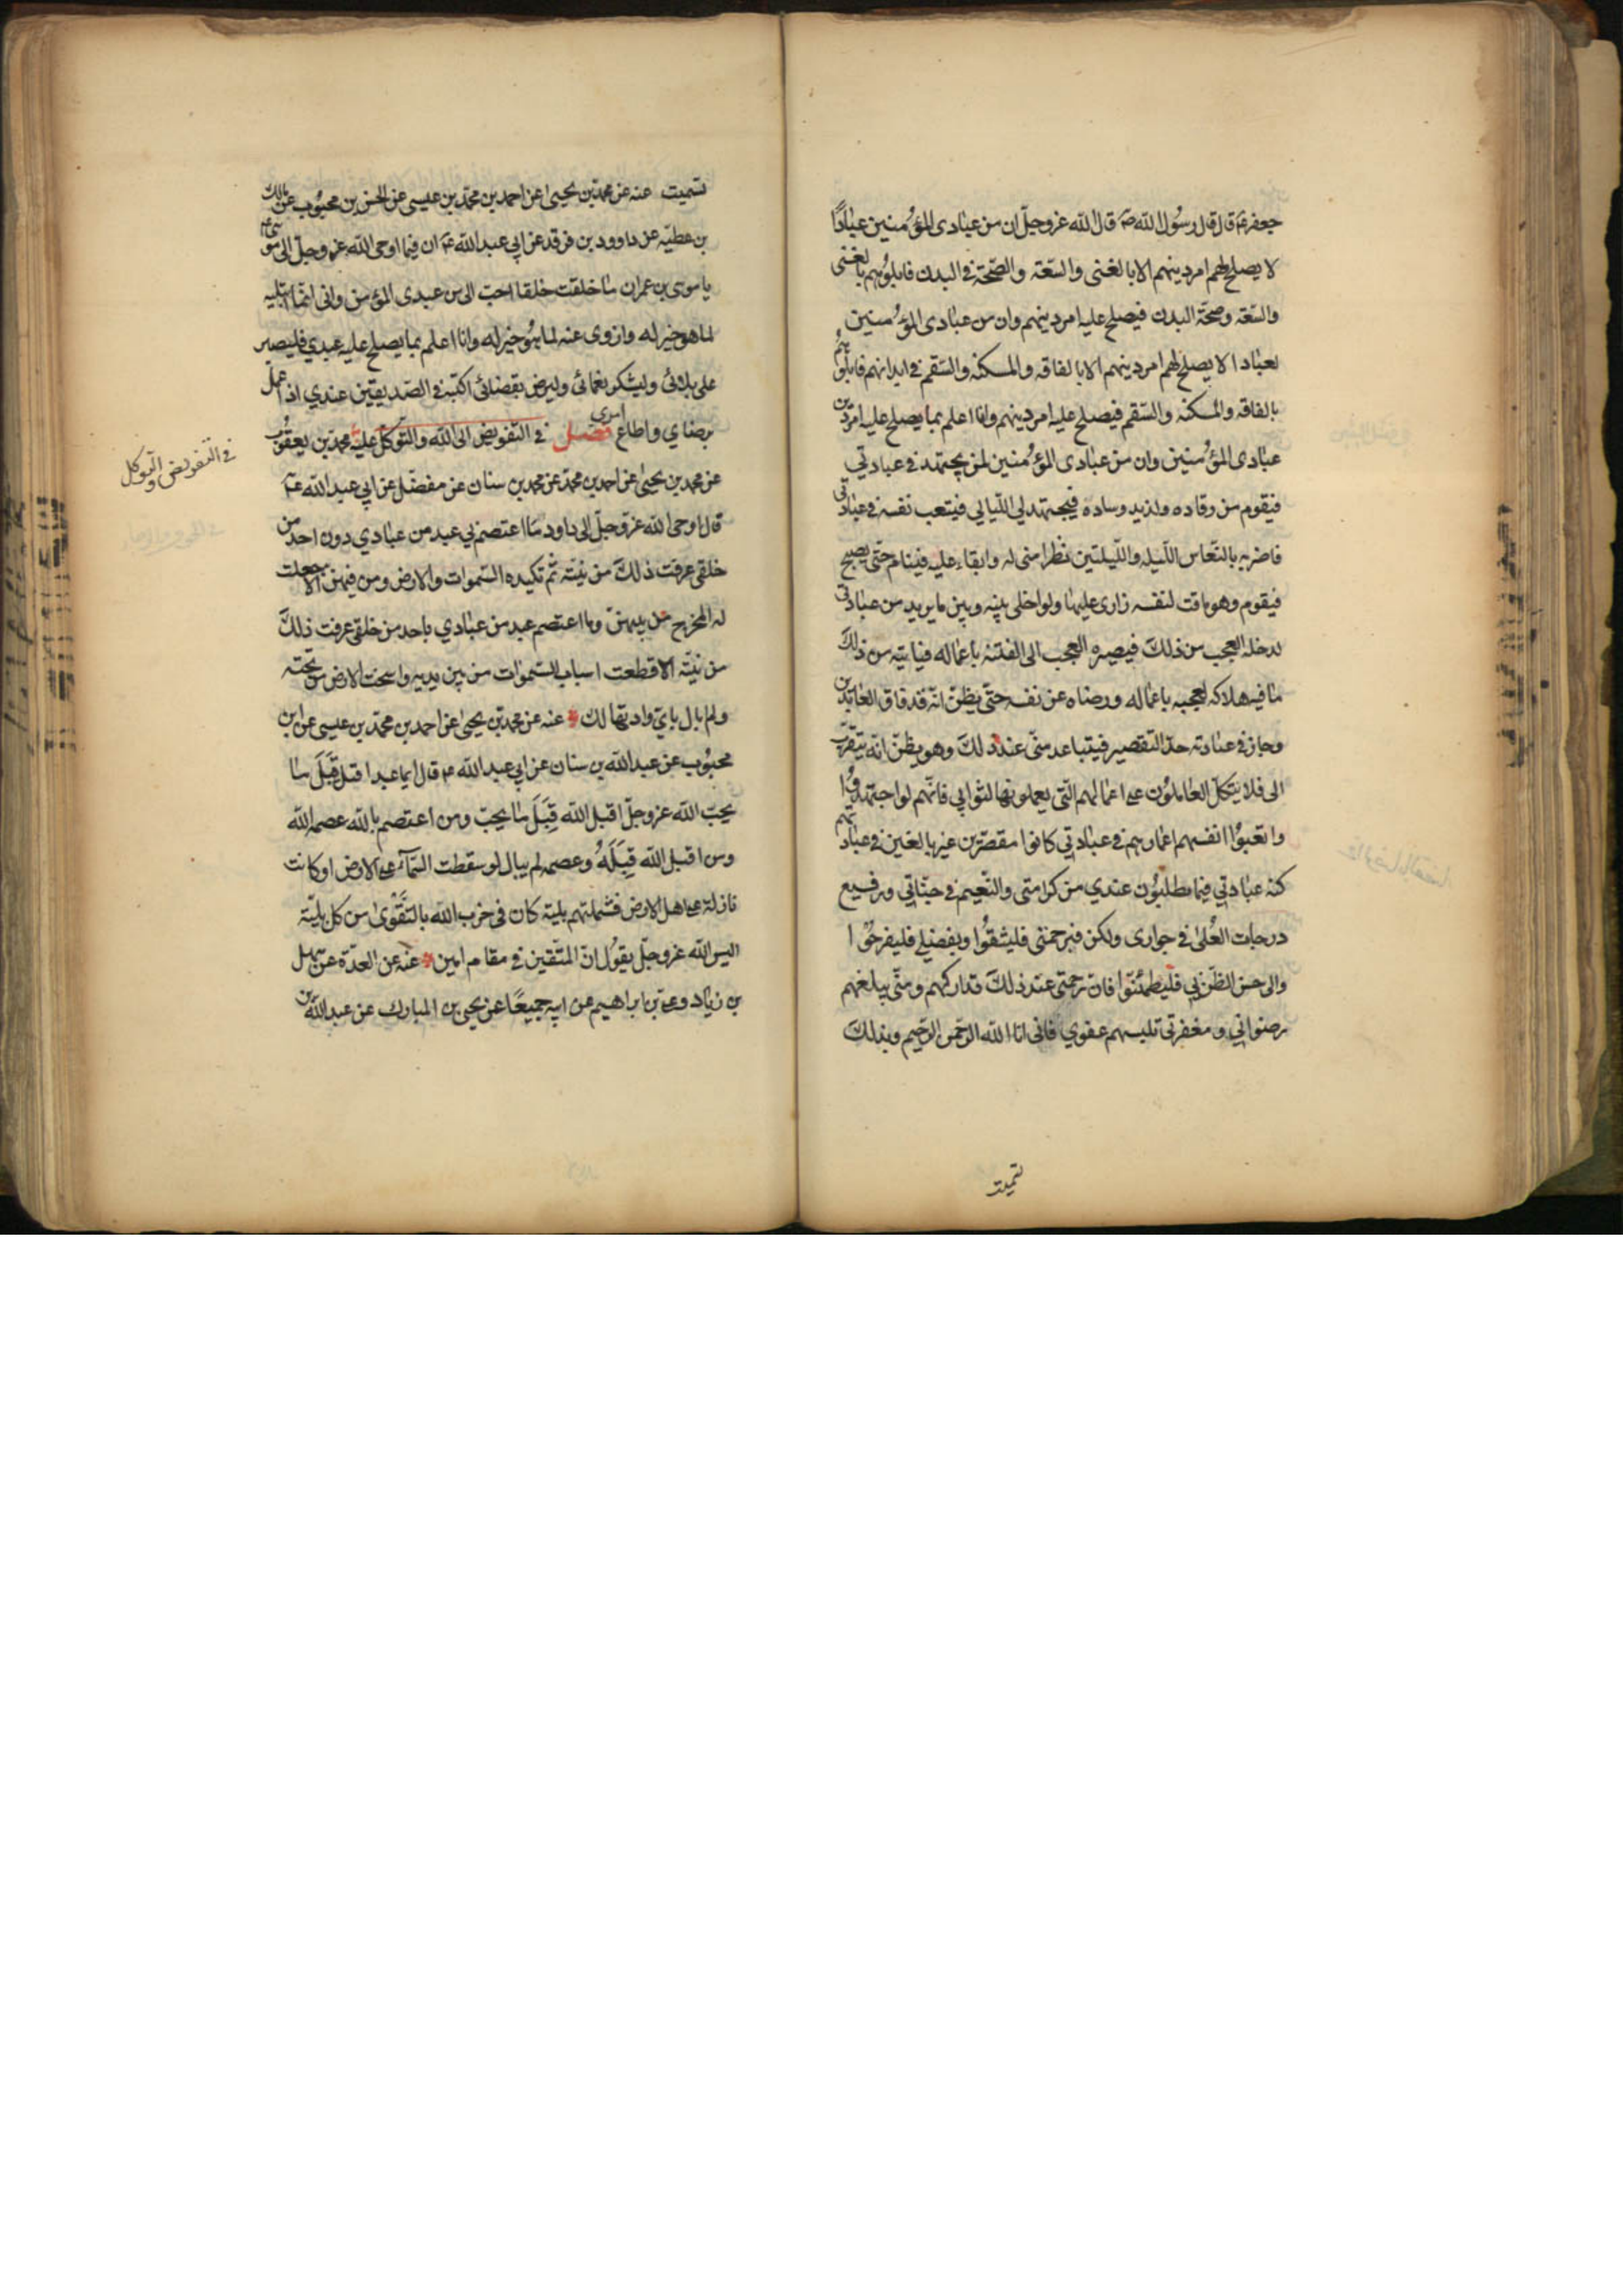 جعفر ع قال قال رسول الله ص قال الله عز وجل ان من عبادى المؤمنين عبادًا
لا يصلح لهم امر دينهم الا بالغنى والسعة والصحة فى البدن فابلوهم بالغنى
والسعة وصحة البدن فيصلح عليه امر دينهم وان من عبادى المؤمنين
لعبادا لا يصلح لهم امر دينهم الا بالفاقه والمسكنه والسقم فى ابدانهم فابلوهم
بالفاقه والمسكنه والسقم فيصلح عليه امر دينهم وانا اعلم بما يصلح عليه امر دين
عبادى المؤمنين وان من عبادى المؤمنين لمن يجتهد فى عبادتي
فيقوم من رقاده ولذيد وساده فيجتهد لي الليالي فيتعب نفسه فى عبادتي
فاضربه بالنعاس الليله والليلتين نظرا منى له وابقاء عليه فينام حتى يصبح
فيقوم وهو ماقت لنفسه زارى عليها ولو اخلى بينه وبين ما يريد من عبادتي
لدخله العجب من ذلك فيصيره العجب الى الفتنه باعماله فياتيه من ذلك
ما فيه هلاكه لعجبه باعماله ورضاه عن نفسه حتى يظن انه قد فاق العابدين
وجاز فى عبادته حد التقصير فيتباعد منى عند ذلك وهو يظن انه يتقرب
الى فلا يتكل العاملون على اعمالهم التي يعملونها لثوابي فانهم لو اجتهدوا
واتعبوا انفسهم اعمارهم فى عبادتي كانوا مقصرين غير بالغين فى عبادتهم
كنه عبادتي فيما يطلبون عندي من كرامتى والنعيم فى جناتي ورفيع
درجات العُلىٰ فى جوارى ولكن فبرحمتى فليثقوا وبفضلي فليفرحوا
والى حسن الظن بي فليطمئنوا فان رحمتى عند ذلك تداركهم ومني يبلغهم
رضواني ومغفرتي تلبسهم عفوي فانى انا الله الرحمن الرحيم وبذلك
تسميت
تسميت عنه عن محمد بن يحيى عن احمد بن محمد بن عيسى عن الحسن بن محبوب عن مالك
بن عطيه عن داوود بن فرقد عن ابي عبد الله ع ان فيما اوحى الله عز وجل الى موسى ع
يا موسى بن عمران ما خلقت خلقا احب الى من عبدى المؤمن وانى انما ابتليه
لما هو خير له وازوى عنه لما هو خير له وانا اعلم بما يصلح عليه عبدي فليصبر
على بلائي وليشكر نعمائي وليرض بقضائي اكتبه فى الصديقين عندي اذا عمل
برضاي واطاع امرى فصل فى التفويض الى الله والتوكل عليه محمد بن يعقوب
فى التفويض والتوكل
عن محمد بن يحيى عن احمد بن محمد عن محمد بن سنان عن مفضل عن ابي عبد الله ع
قال اوحى الله عز وجل الى داود ما اعتصم بي عبد من عبادي دون احد من
خلقى عرفت ذلك من نيته ثم تكيده السموات والارض ومن فيهن الا جعلت
له المخرج من بينهن وما اعتصم عبد من عبادي باحد من خلقى عرفت ذلك
من نيته الا قطعت اسباب السموات من بين يديه واسخت الارض من تحته
ولم ابال باي واد تهالك عنه عن محمد بن يحيى عن احمد بن محمد بن عيسى عن ابن
محبوب عن عبد الله بن سنان عن ابي عبد الله ع قال ايما عبد اقبل قِبَلَ ما
يحب الله عز وجل اقبل الله قِبَلَ ما يحب ومن اعتصم بالله عصمه الله
ومن اقبل الله قِبَلَهُ وعصمه لم يبال لو سقطت السمآء على الارض او كانت
نازلة على اهل الارض فشملتهم بلية كان فى حزب الله بالتقوىٰ من كل بلية
اليس الله عز وجل يقول ان المتقين فى مقام امين عنه عن العدة عن سهل
بن زياد وعلى بن ابراهيم عن ابيه جميعًا عن يحيى بن المبارك عن عبد الله بن